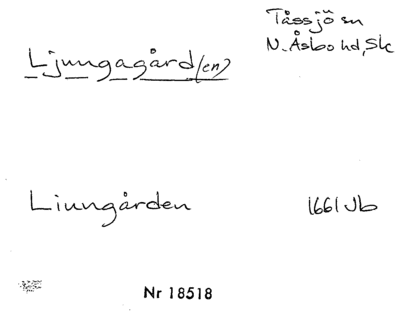 Tåssjö sn
N. Åsbo hd, Sk
Ljungagård(en)
Liungården 1661 Jb
Nr 18518